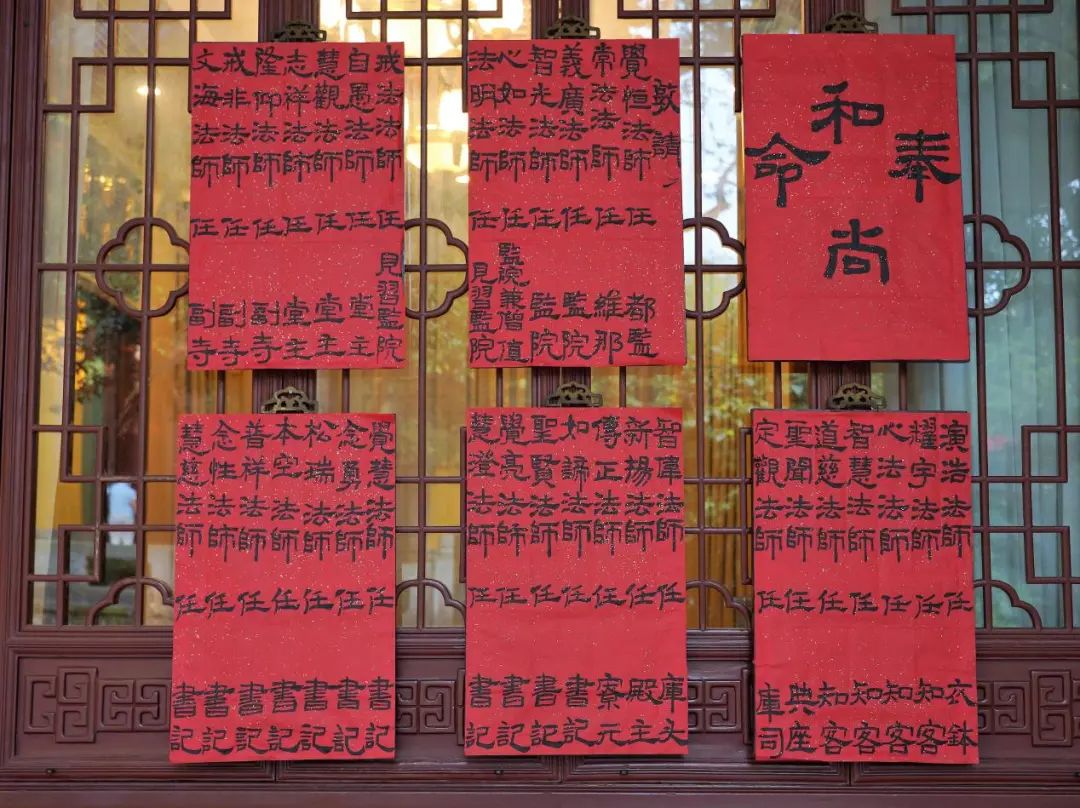 奉
和尚
命
敦請
覺恒法師任都監
常法法師任維那
義廣法師任監院
智光法師任監院
心如法師任監院兼僧值
法明法師任見習監院
戒法法師任見習監院
自愚法師任堂主
慧觀法師任堂主
志祥法師任堂主
隆仰法師任副寺
戒非法師任副寺
文海法師任副寺
演浩法師任衣鉢
耀宇法師任知客
心法法師任知客
智慧法師任知客
道慈法師任知客
聖聞法師任典座
定觀法師任庫司
智偉法師任庫头
新楊法師任殿主
傳正法師任寮元
如諦法師任書記
聖賢法師任書記
覺亮法師任書記
慧澄法師任書記
覺慧法師任書記
念勇法師任書記
松瑞法師任書記
本空法師任書記
普祥法師任書記
念性法師任書記
慧慈法師任書記